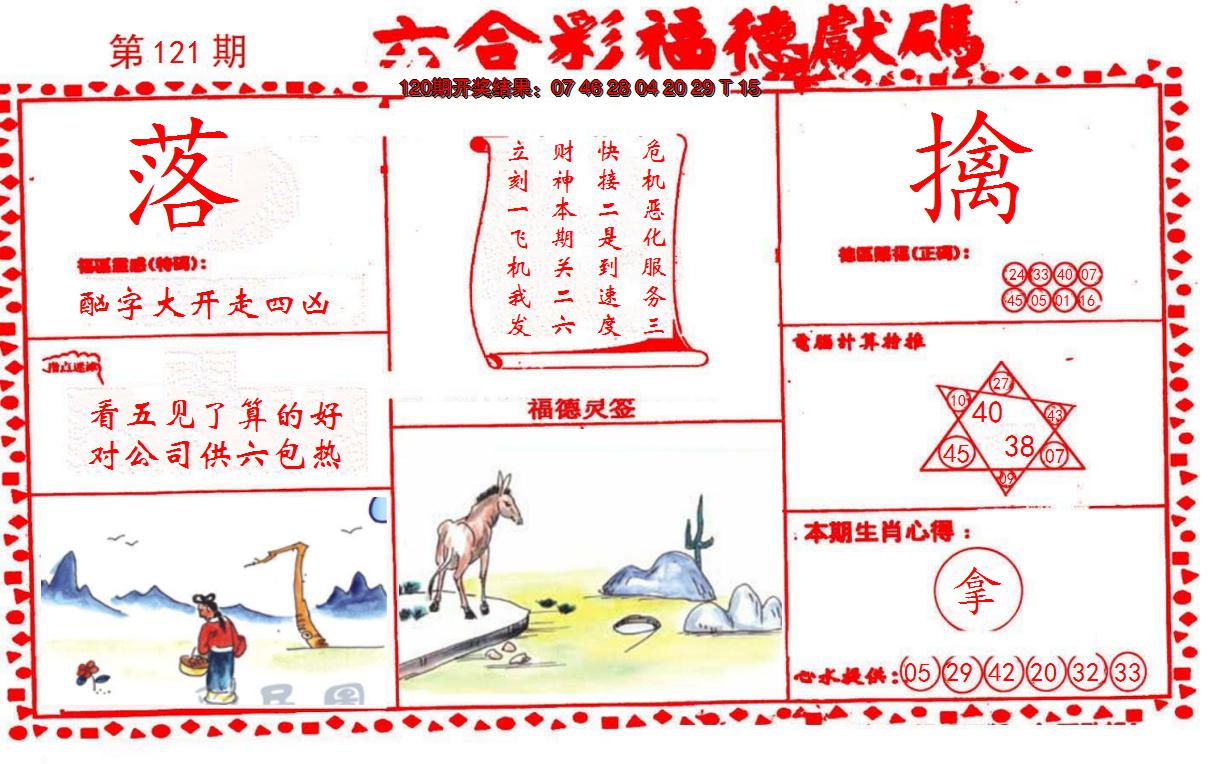 第121期
六合彩福德獻碼
120期开奖结果：07 46 28 04 20 29 T 15
落
酗字大开走四凶
看五见了算的好
对公司供六包热
危机恶化服务三
快接二是到速度
财神本期关二六
立刻一飞机我发
福德灵签
擒
24 33 40 07
45 05 01 16
電腦計算特推
27
10 40 43
45 38 07
09
本期生肖心得：
拿
心水提供：05 29 42 20 32 33